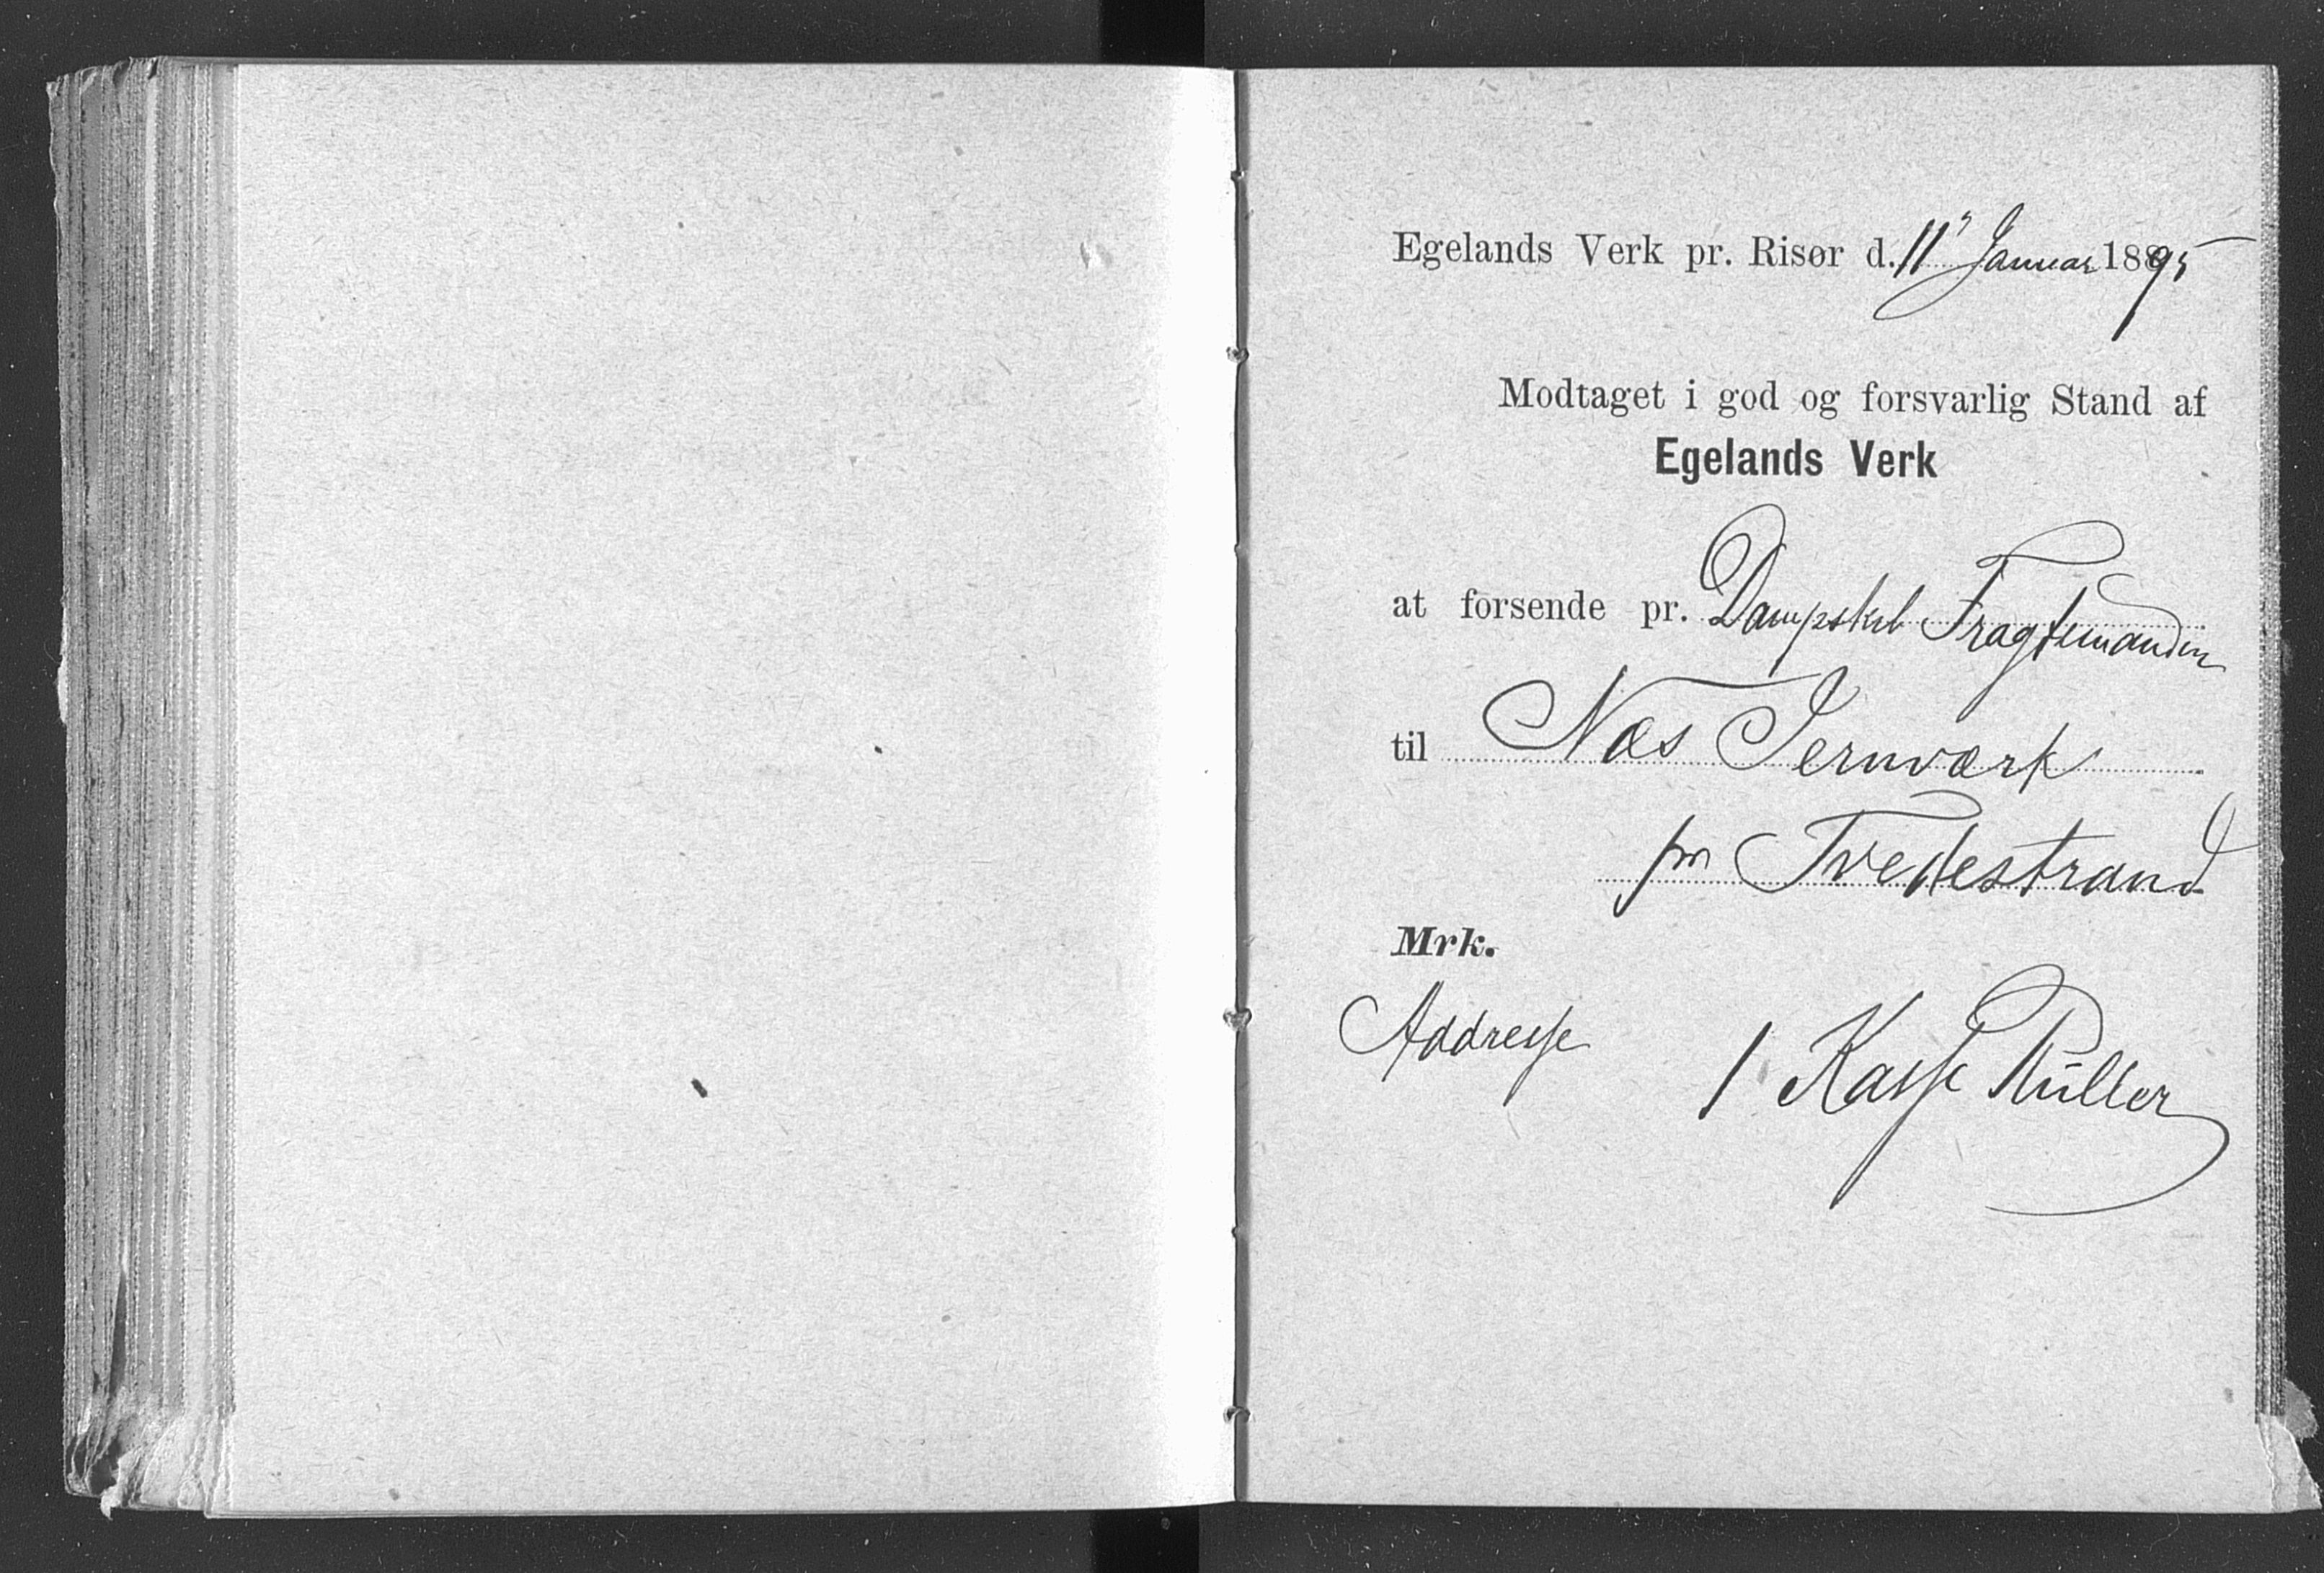 Egelands Verk pr. Risør d. 11' Januar 1895
Modtaget i god og forsvarlig Stand af
Egelands Verk
at forsende pr. Dampskib Fragtemanden
til Næs Jernværk
pr Tvedestrand
Mrk.
Addresse
1 Kasse Ruller